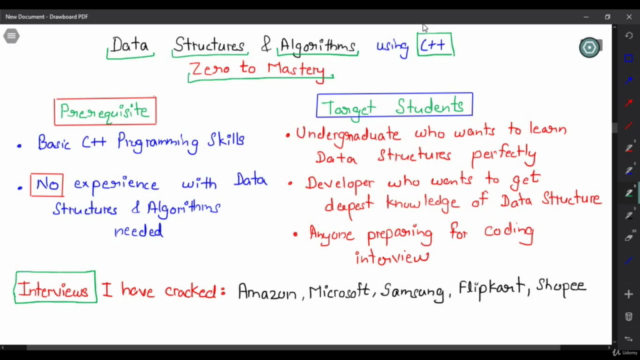 New Document - Drawboard PDF
Data Structures & Algorithms using C++
Zero to Mastery
Prerequisite
• Basic C++ Programming Skills
• No experience with Data
Structures & Algorithms
needed
Target Students
• Undergraduate who wants to learn
Data Structures perfectly
• Developer who wants to get
deepest knowledge of Data Structure
• Anyone preparing for coding
interview
Interviews I have cracked: Amazon, Microsoft, Samsung, Flipkart, Shopee